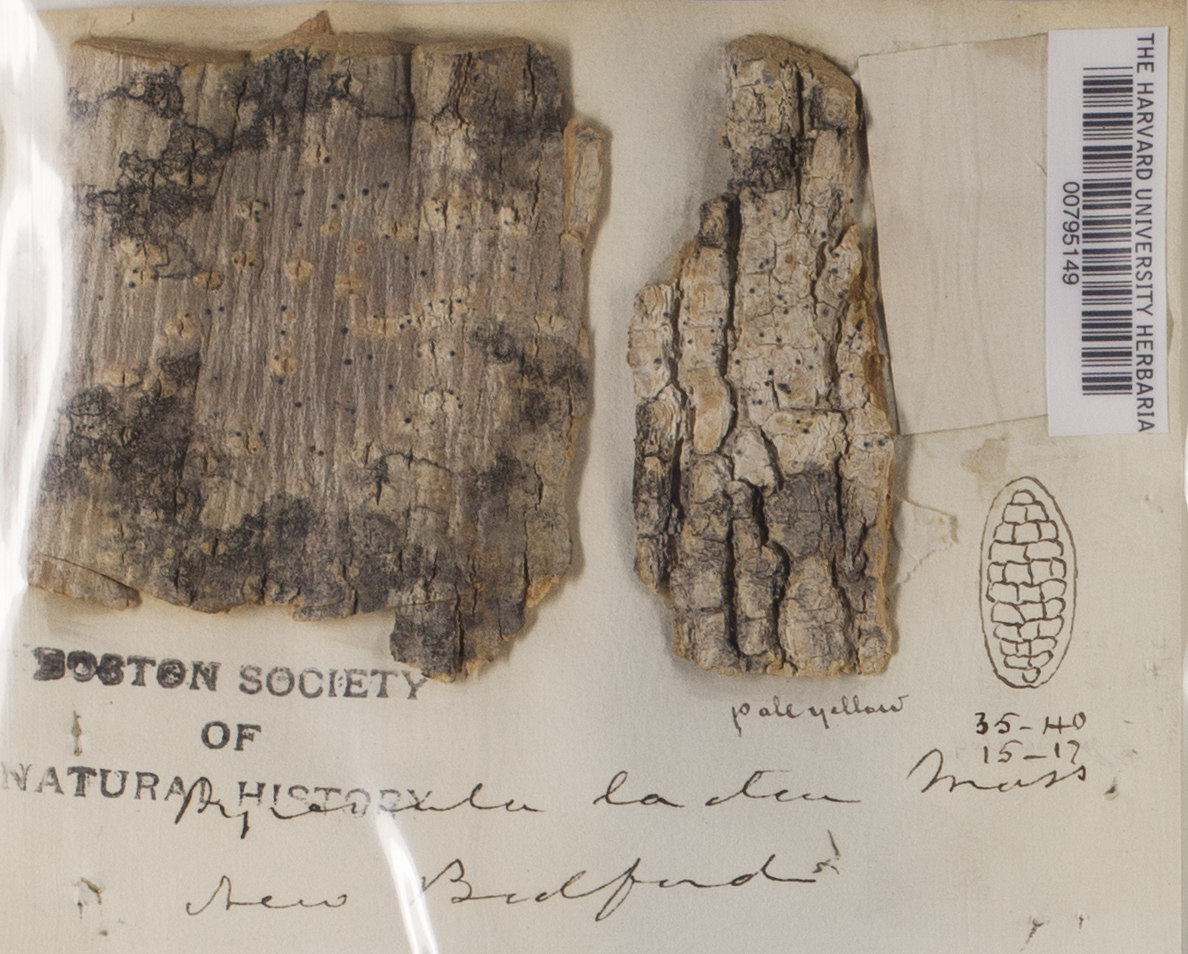 THE HARVARD UNIVERSITY HERBARIA
00795149
pale yellow
35-40
15-17
BOSTON SOCIETY
OF
NATURAL HISTORY
Pyrenula lactea Mass
New Bedford